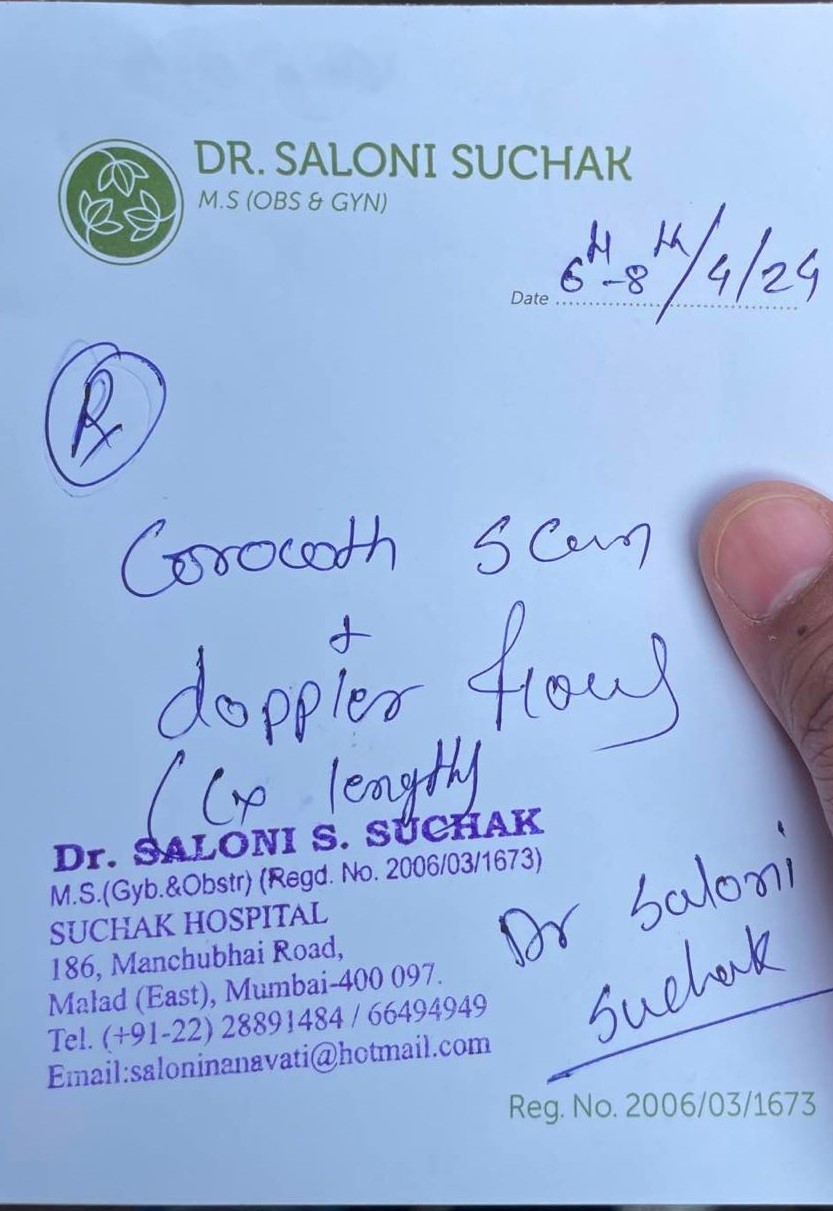 DR. SALONI SUCHAK
M.S (OBS & GYN)
Date 6th-8th/4/24
Rx
Growth scan
+
doppler flows
(Cx length)
Dr. SALONI S. SUCHAK
M.S.(Gyb.&Obstr) (Regd. No. 2006/03/1673)
SUCHAK HOSPITAL
186, Manchubhai Road,
Malad (East), Mumbai-400 097.
Tel. (+91-22) 28891484 / 66494949
Email:saloninanavati@hotmail.com
Dr Saloni
Suchak
Reg. No. 2006/03/1673